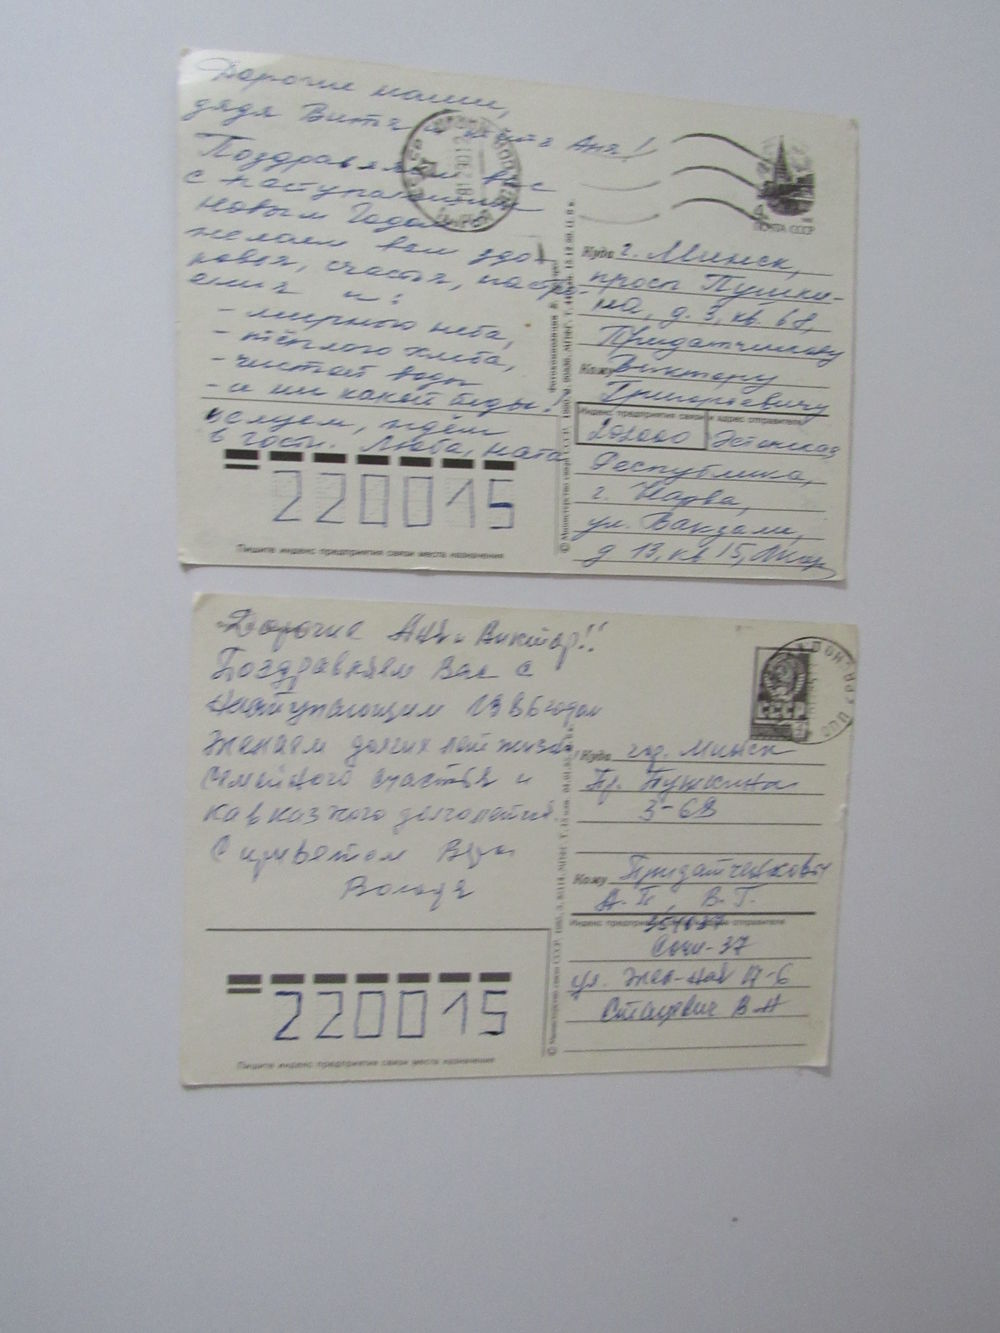 Дорогие наши,
дядя Витя и тётя Аня!
Поздравляем вас
с наступающим
новым Годом
желаем вам здо
ровья, счастья, настро-
ения и:
- мирного неба,
- тёплого хлеба,
- чистой воды
- и ни какой беды.
целуем, ждём
в гости. Люба, Ната
ПОЧТА СССР
Куда г. Минск,
просп Пушки-
на, д. 3, кв. 68,
Кому Виктору
Григорьевичу
Индекс предприятия связи и адрес отправителя
202000 Эстонская
Республика,
г. Нарва,
ул. Вакзали,
д 13, кв 15,
220015
Пишите индекс предприятия связи места назначения
Дорогие Аня и Виктор!!
Поздравляем Вас с
наступающим 1986 годом
Желаем долгих лет жизни,
семейного счастья и
кавказкого долголетия.
С приветом
Володя
СССР
Куда гор. Минск
Пр. Пушкина
3-68
Кому
А. П., В. Г.
Индекс предприятия связи и адрес отправителя
354037
Сочи-37
ул. 17-6
Стацевич В Н
220015
Пишите индекс предприятия связи места назначения